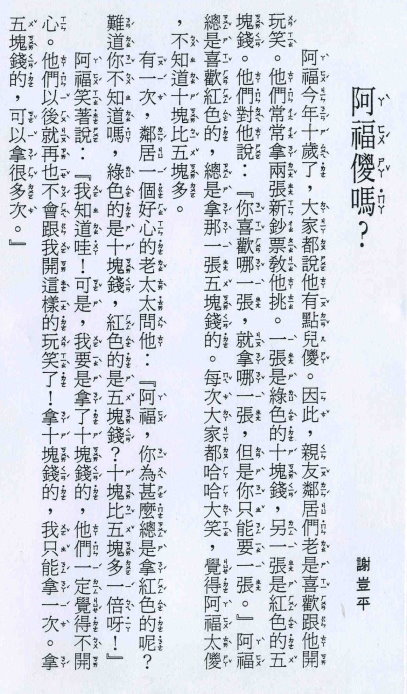 阿福傻嗎？
謝豈平
阿福今年十歲了，大家都說他有點兒傻。因此，親友鄰居們老是喜歡跟他開
玩笑。他們常常拿兩張新鈔票教他挑。一張是綠色的十塊錢，另一張是紅色的五
塊錢。他們對他說：『你喜歡哪一張，就拿哪一張，但是你只能要一張。』阿福
總是喜歡紅色的，總是拿那一張五塊錢的。每次大家都哈哈大笑，覺得阿福太傻
，不知道十塊比五塊多。
有一次，鄰居一個好心的老太太問他：『阿福，你為甚麼總是拿紅色的呢？
難道你不知道嗎，綠色的是十塊錢，紅色的是五塊錢？十塊比五塊多一倍呀！』
阿福笑著說：『我知道哇！可是，我要是拿了十塊錢的，他們一定覺得不開
心。他們以後就再也不會跟我開這樣的玩笑了！拿十塊錢的，我只能拿一次。拿
五塊錢的，可以拿很多次。』